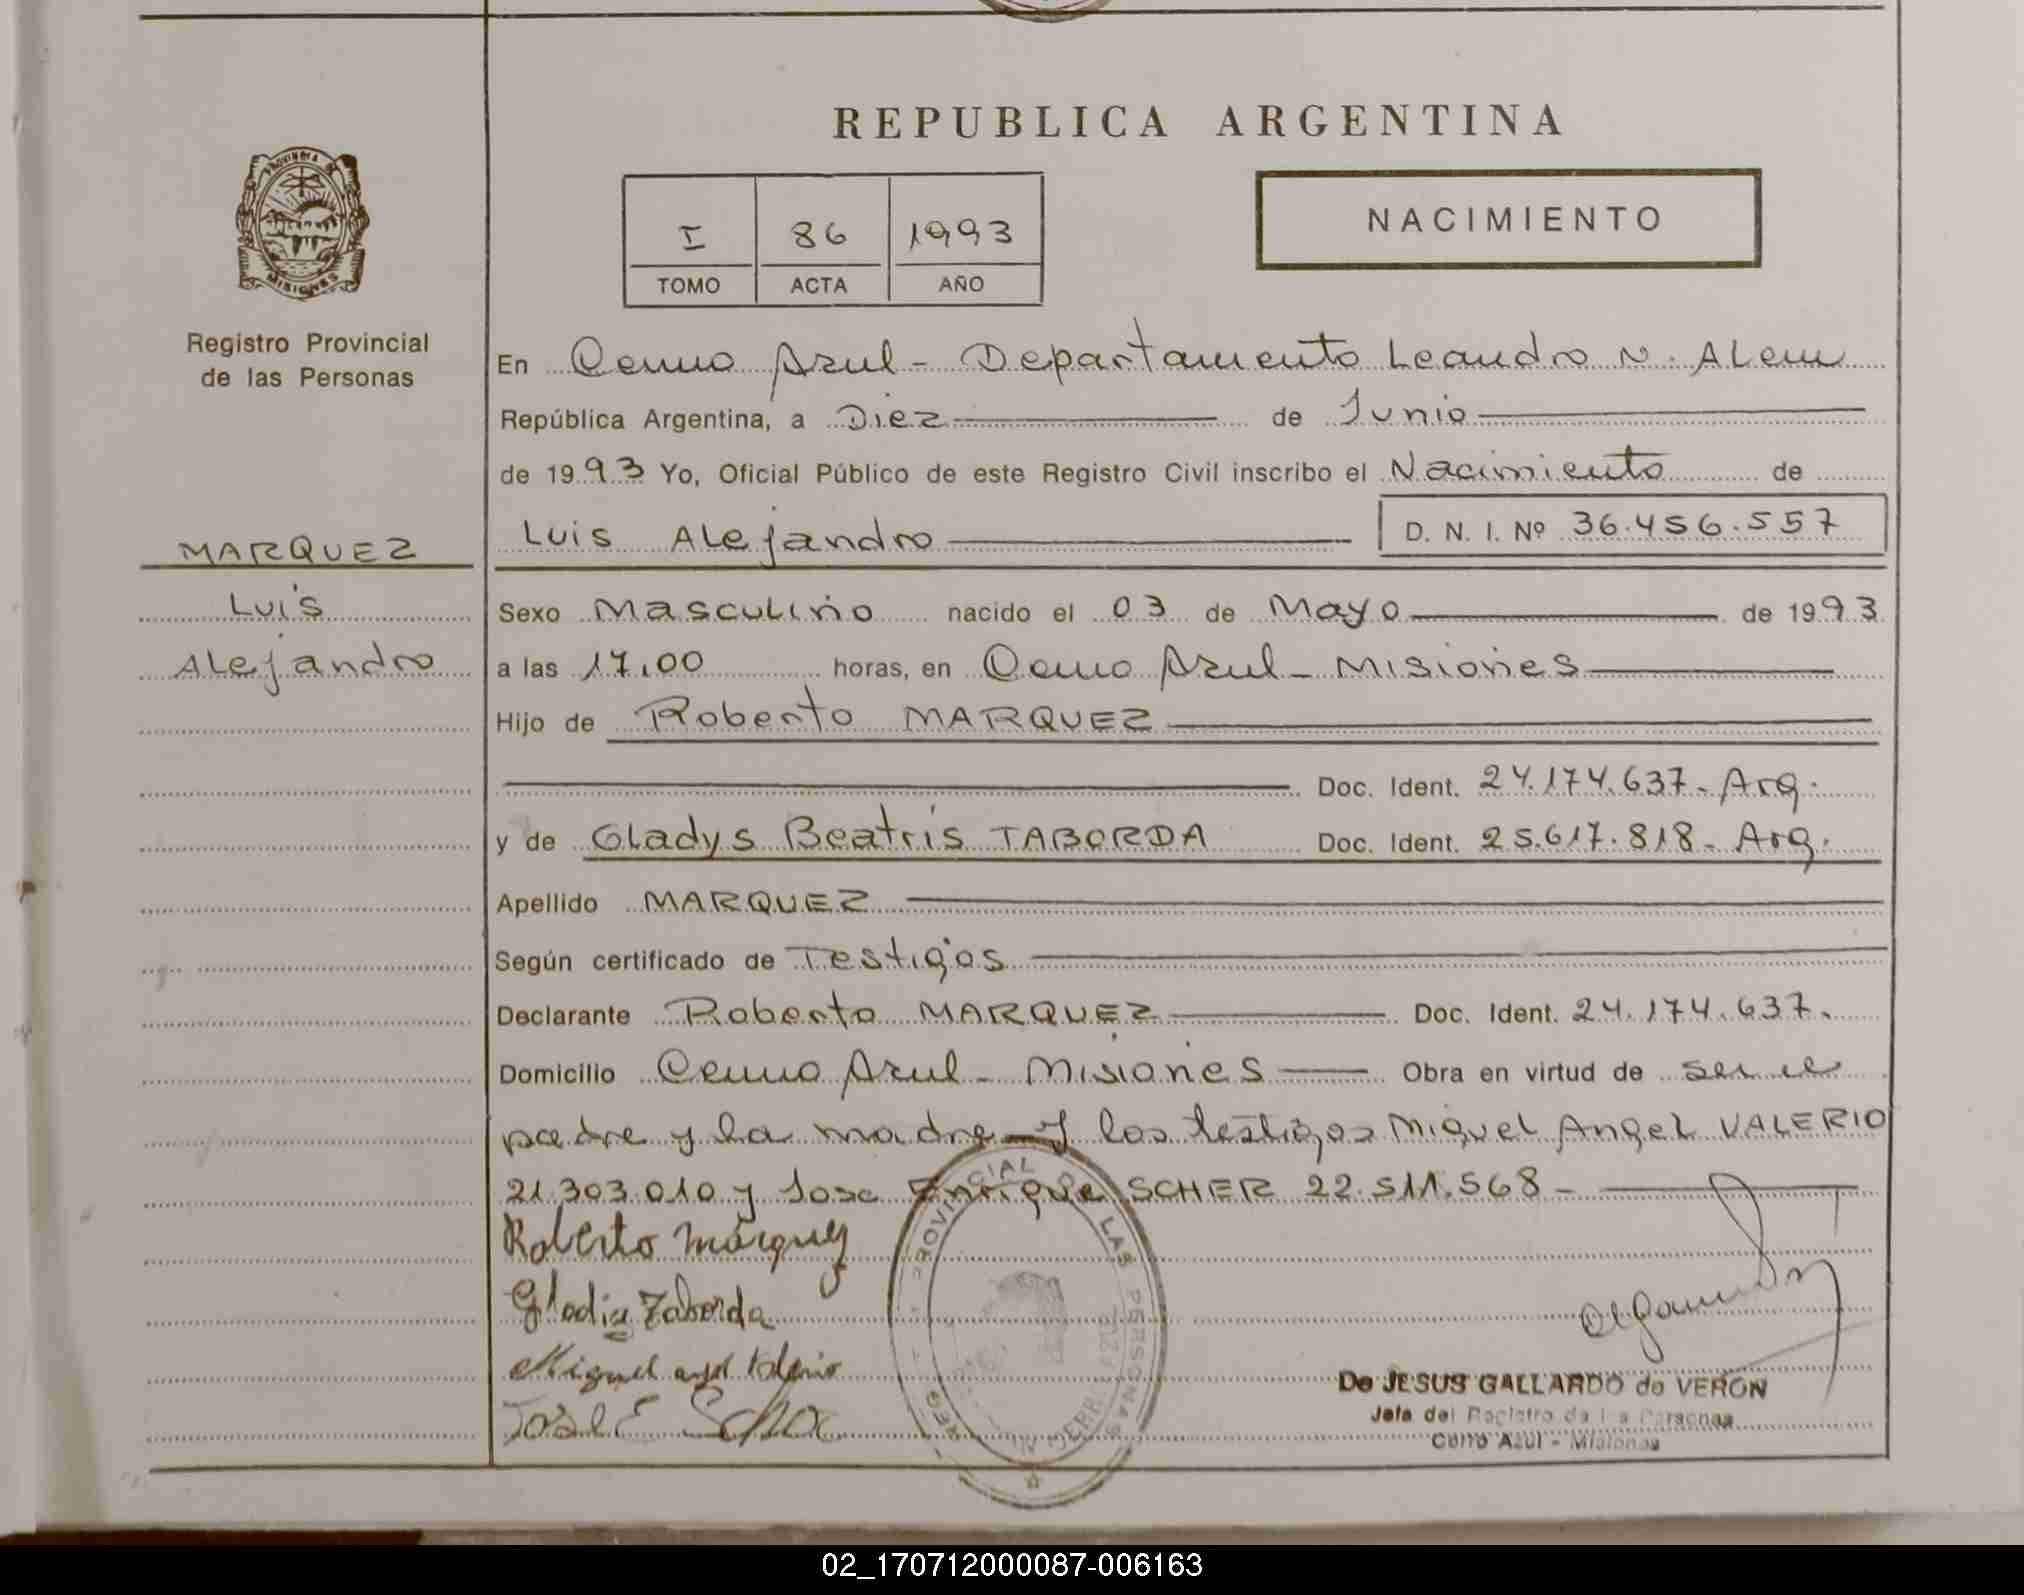 REPUBLICA ARGENTINA
PROVINCIA DE
MISIONES
Registro Provincial
de las Personas
I 86 1993
TOMO ACTA AÑO
NACIMIENTO
En Cerro Azul - Departamento Leandro N. ALem
República Argentina, a Diez de Junio
de 1993 Yo, Oficial Público de este Registro Civil inscribo el Nacimiento de
Luis ALejandro D. N. I. Nº 36.456.557
MARQUEZ
Luis
ALejandro
Sexo Masculino nacido el 03 de Mayo de 1993
a las 17,00 horas, en Cerro Azul - Misiones
Hijo de Roberto MARQUEZ
Doc. Ident. 24.174.637- Arg.
y de Gladys Beatris TABORDA Doc. Ident. 25.617.818- Arg.
Apellido MARQUEZ
Según certificado de Testigos
Declarante Roberto MARQUEZ Doc. Ident. 24.174.637.
Domicilio Cerro Azul - Misiones Obra en virtud de ser el
padre y la madre y los testigos Miguel Angel VALERIO
21.303.010 y Jose Enrique SCHER 22.511.568 -
Roberto Márquez
Gladis Taborda
Miguel angel Valerio
Jose E
PROVINCIAL DE LAS PERSONAS
De JESUS GALLARDO de VERON
Jefe del Registro de las Personas
Cerro Azul - Misiones
02_170712000087-006163